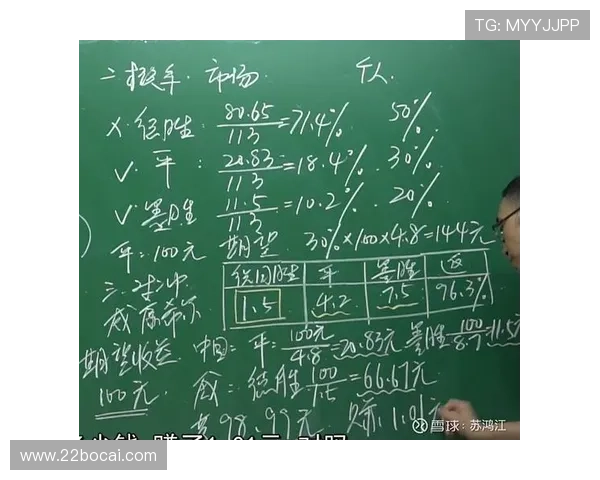 TG: MYYJJPP
二 投率. 市场 个人
X. 德胜: 80.65/113=71.4% 50%
✓. 平: 20.83/113=18.4% 30%
✓. 墨胜 11.5/113=10.2% 20%
平=100元 期望 30%×100×4.8=144元
三. 对冲
德国胜 平 墨胜 返
1.5 4.2 7.5 96.3%
期望收益 中国: 平: 100元/4.8=20.83元 墨胜 100/8.7=11.5元
100元 德胜 100/1.5=66.67元
98.99元 赚 1.01元
雪球:苏鸿江
www.22bocai.com